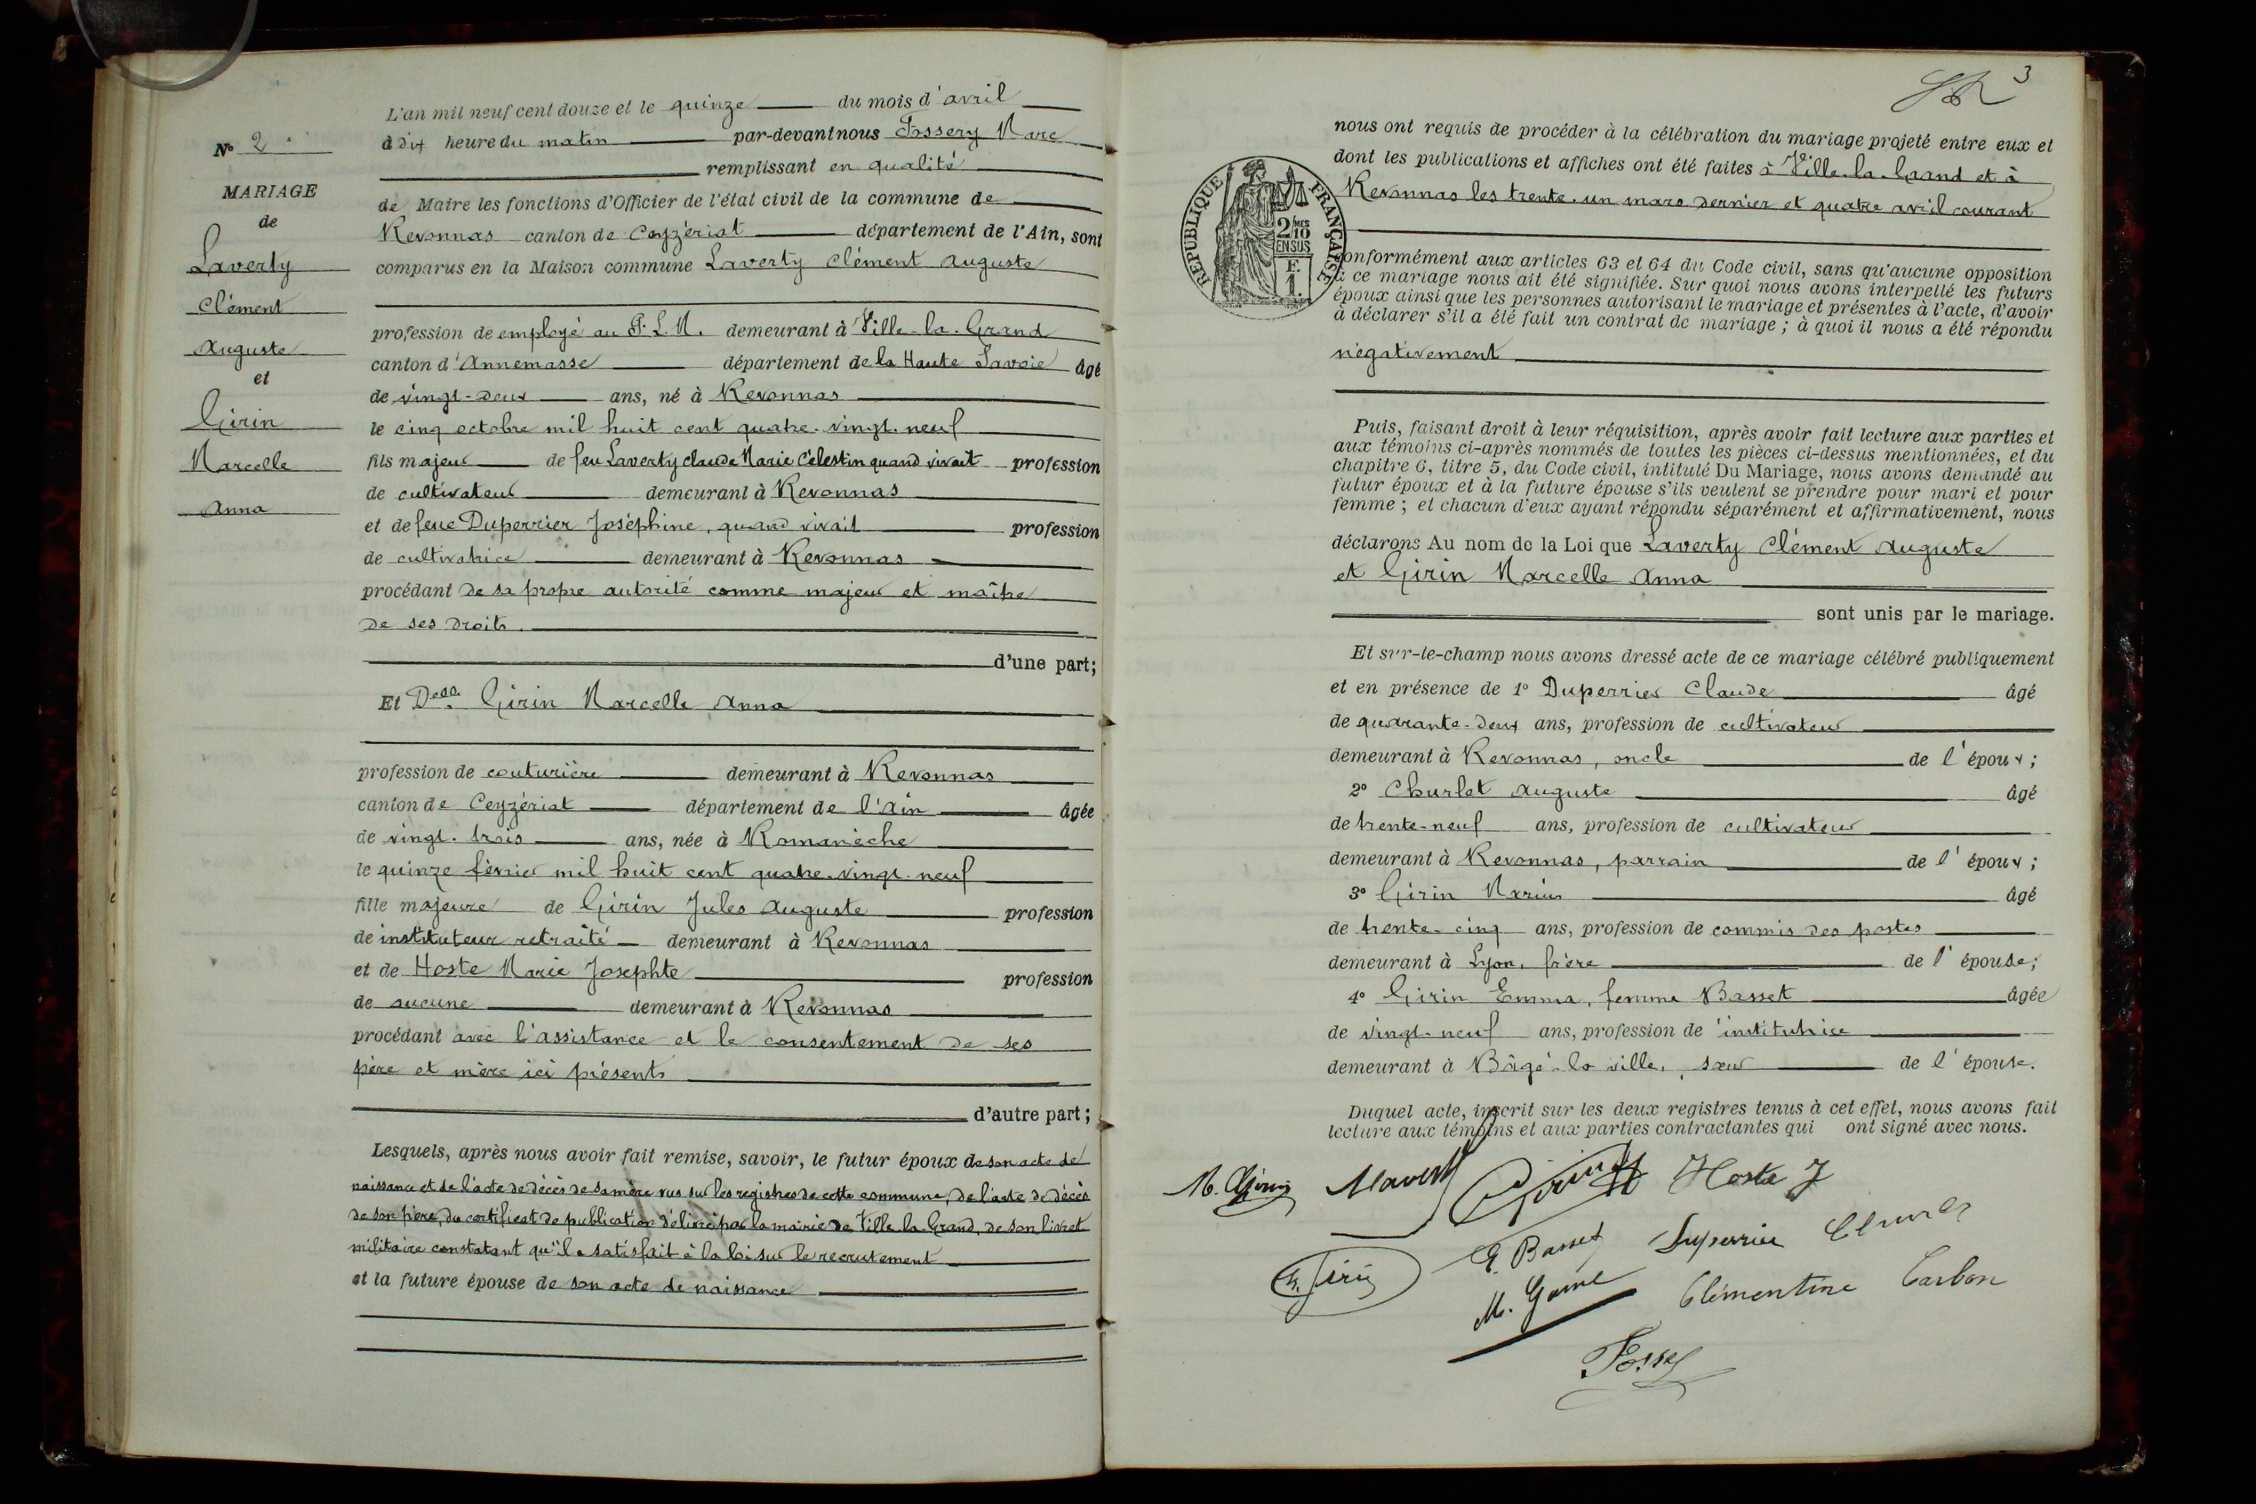 L'an mil neuf cent douze et le quinze du mois d'avril
à dix heure du matin par-devant nous Fossery Marc
remplissant en qualité
de Maire les fonctions d'Officier de l'état civil de la commune de
Revonnas canton de Ceyzériat département de l'Ain, sont
comparus en la Maison commune Laverty Clément Auguste
profession de employé au P.L.M. demeurant à Ville-la-Grand
canton d'Annemasse département de la Haute Savoie âgé
de vingt-deux ans, né à Revonnas
le cinq octobre mil huit cent quatre-vingt-neuf
fils majeur de feu Laverty Claude Marie Célestin quand vivait profession
de cultivateur demeurant à Revonnas
et de feue Duperrier Joséphine, quand vivait profession
de cultivatrice demeurant à Revonnas
procédant de sa propre autorité comme majeur et maître
de ses droits.
d'une part;
Et Delle Girin Marcelle Anna
profession de couturière demeurant à Revonnas
canton de Ceyzériat département de l'Ain âgée
de vingt-trois ans, née à Romanèche
le quinze février mil huit cent quatre-vingt-neuf
fille majeure de Girin Jules Auguste profession
de instituteur retraité demeurant à Revonnas
et de Hoste Marie Josephte profession
de aucune demeurant à Revonnas
procédant avec l'assistance et le consentement de ses
père et mère ici présents
d'autre part;
Lesquels, après nous avoir fait remise, savoir, le futur époux de son acte de
naissance et de l'acte de décès de sa mère vus sur les registres de cette commune, de l'acte de décès
de son père, du certificat de publication délivré par la mairie de Ville-la-Grand, de son livret
militaire constatant qu'il a satisfait à la loi sur le recrutement
et la future épouse de son acte de naissance
N° 2
MARIAGE
de
Laverty
Clément
Auguste
et
Girin
Marcelle
Anna
3
nous ont requis de procéder à la célébration du mariage projeté entre eux et
dont les publications et affiches ont été faites à Ville-la-Grand et à
Revonnas les trente-un mars dernier et quatre avril courant
RÉPUBLIQUE FRANÇAISE
2/10 MES
EN SUS
F.
1.
onformément aux articles 63 et 64 du Code civil, sans qu'aucune opposition
à ce mariage nous ait été signifiée. Sur quoi nous avons interpellé les futurs
époux ainsi que les personnes autorisant le mariage et présentes à l'acte, d'avoir
à déclarer s'il a été fait un contrat de mariage; à quoi il nous a été répondu
négativement
Puis, faisant droit à leur réquisition, après avoir fait lecture aux parties et
aux témoins ci-après nommés de toutes les pièces ci-dessus mentionnées, et du
chapitre 6, titre 5, du Code civil, intitulé Du Mariage, nous avons demandé au
futur époux et à la future épouse s'ils veulent se prendre pour mari et pour
femme; et chacun d'eux ayant répondu séparément et affirmativement, nous
déclarons Au nom de la Loi que Laverty Clément Auguste
et Girin Marcelle Anna
sont unis par le mariage.
Et sur-le-champ nous avons dressé acte de ce mariage célébré publiquement
et en présence de 1° Duperrier Claude âgé
de quarante-deux ans, profession de cultivateur
demeurant à Revonnas, oncle de l'époux;
2° Churlet Auguste âgé
de trente-neuf ans, profession de cultivateur
demeurant à Revonnas, parrain de l'époux;
3° Girin Marius âgé
de trente-cinq ans, profession de commis des postes
demeurant à Lyon, frère de l'épouse;
4° Girin Emma, femme Basset âgée
de vingt-neuf ans, profession de institutrice
demeurant à Bâgé-la-ville, sœur de l'épouse.
Duquel acte, inscrit sur les deux registres tenus à cet effet, nous avons fait
lecture aux témoins et aux parties contractantes qui ont signé avec nous.
M. Girin Girin Hoste J
Girin E. Basset Duperrier
Clémentine Carbon